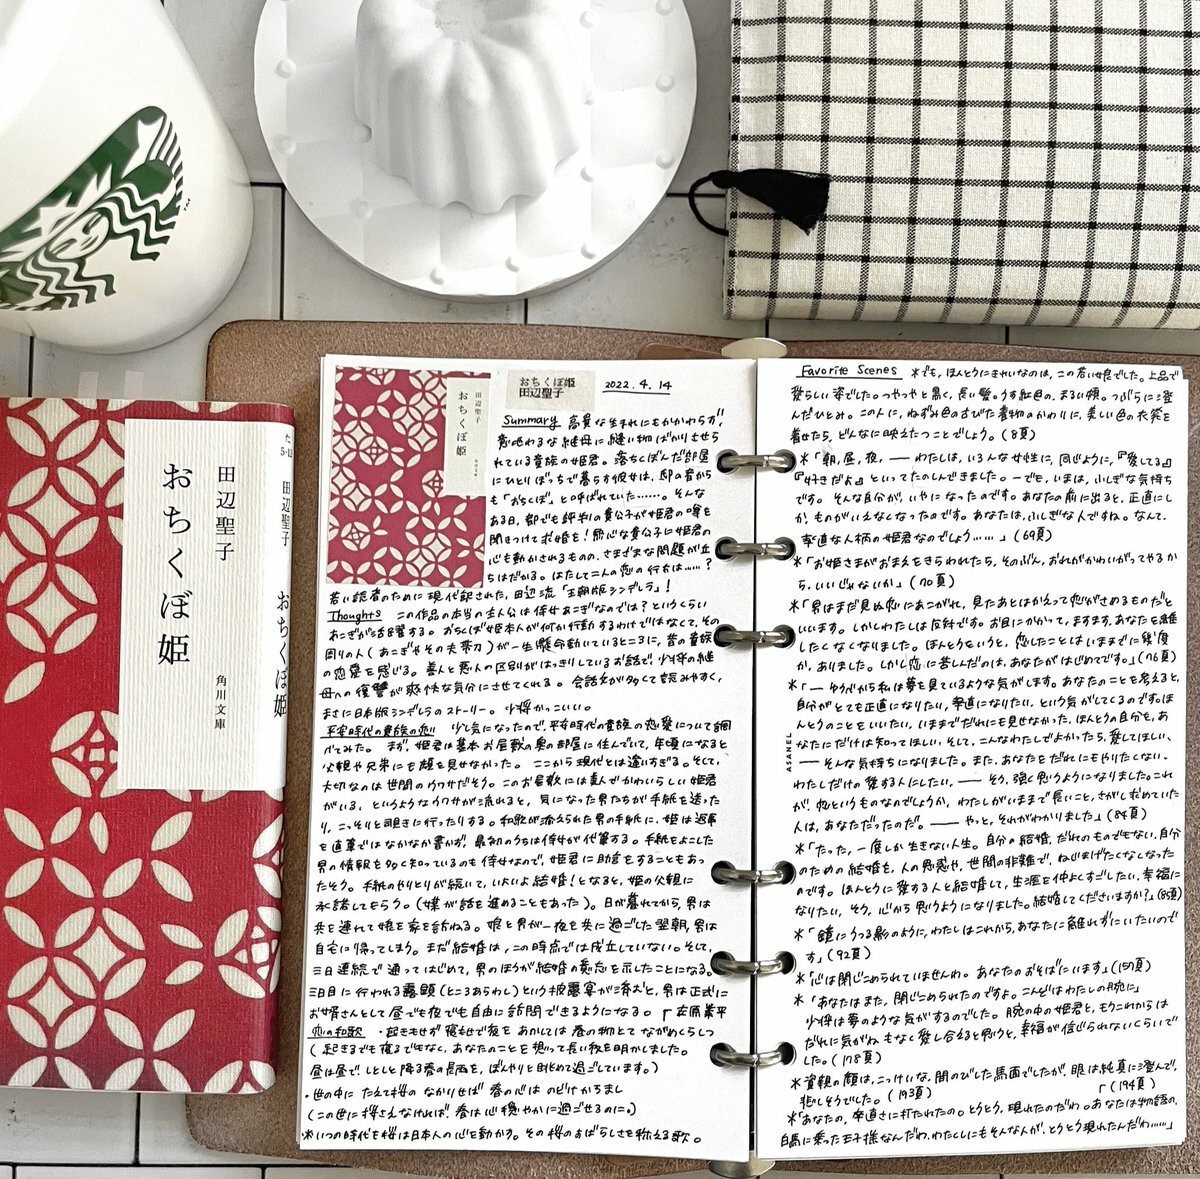 TM
た
5-12
田辺聖子
おちくぼ姫
田辺聖子
おちくぼ姫
角川文庫
田辺聖子
おちくぼ姫
角川文庫
おちくぼ姫
田辺聖子
2022.4.14
Summary 高貴な生まれにもかかわらず、
意地わるな継母に縫い物ばかりさせら
れている貴族の姫君。落ちくぼんだ部屋
にひとりぼっちで暮らす彼女は、邸の者から
も「おちくぼ」と呼ばれていた……。そんな
ある日、都でも評判の貴公子が姫君の噂を
聞きつけて求婚を!熱心な貴公子に姫君の
心も動かされるものの、さまざまな問題が立
ちはだかる。はたして二人の恋の行方は……?
若い読者のために現代訳された、田辺流「王朝版シンデレラ」!
Thoughts この作品の本当の主人公は侍女あこぎなのでは?というくらい
あこぎが活躍する。おちくぼ姫本人が何か行動するわけではなくて、その
周りの人(あこぎやその夫帯刀)が一生懸命動いているところに、昔の貴族
の恋愛を感じる。善人と悪人の区別がはっきりしているお話で、少将の継
母への復讐が爽快な気分にさせてくれる。会話文が多くて読みやすく、
まさに日本版シンデレラのストーリー。少将かっこいい。
平安時代の貴族の恋 少し気になったので、平安時代の貴族の恋愛について調
べてみた。まず、姫君は基本お屋敷の奥の部屋に住んでいて、年頃になると
父親や兄弟にも顔を見せなかった。ここから現代とは違いすぎる。そして、
大切なのは世間のウワサだそう。このお屋敷には美人でかわいらしい姫君
がいる、というようなウワサが流れると、気になった男たちが手紙を送った
り、こっそりと覗きに行ったりする。和歌が添えられた男の手紙に、姫は返事
を直筆ではなかなか書かず、最初のうちは侍女が代筆する。手紙をよこした
男の情報を多く知っているのも侍女なので、姫君に助言をすることもあっ
たそう。手紙のやりとりが続いて、いよいよ結婚!となると、姫の父親に
承諾してもらう。(嫁が話を進めることもあった)。日が暮れてから、男は
共を連れて娘を家を訪ねる。娘と男が一夜を共に過ごした翌朝、男は
自宅に帰ってしまう。まだ結婚は、この時点では成立していない。そして、
三日連続で通ってはじめて、男のほうが結婚の意志を示したことになる。
三日目に行われる露顕(ところあらわし)という披露宴が済むと、男は正式に
お婿さんとして昼でも夜でも自由に訪問できるようになる。 「在原業平
恋の和歌 ・起きもせず寝もせで夜をあかしては春の物とてながめくらしつ
(起きるでも寝るでもなく、あなたのことを想って長い夜を明かしました。
昼は昼で、しとしと降る春の長雨を、ぼんやりと眺めて過ごしています。)
・世の中にたえて桜のなかりせば春の心はのどけからまし
(この世に桜さえなければ春は心穏やかに過ごせるのに。)
※いつの時代も桜は日本人の心を動かす。その桜のすばらしさを称える歌。
ASANEL
Favorite Scenes ※でも、ほんとうにきれいなのは、この若い姫でした。上品で
愛らしい姿でした。つやつやと黒く、長い髪。うす紅色の、まるい頬。つぶらに澄
んだひとみ。この人に、ねずみ色のさびた着物のかわりに、美しい色の衣装を
着せたら、どんなに映えたつことでしょう。(8頁)
※「朝、昼、夜、――わたしは、いろんな女性に、同じように、『愛してる』
『好きだよ』といってたのしんできました。――でも、いまは、ふしぎな気持ち
です。そんな自分が、いやになったのです。あなたの前に出ると、正直にし
か、ものがいえなくなったのです。あなたは、ふしぎな人ですね。なんて、
率直な人柄の姫君なのでしょう……」(69頁)
※「お姫さまがおまえをきらわれたら、そのぶん、おれがかわいがってやるか
ら、いいじゃないか」(70頁)
※「男はまだ見ぬ恋にあこがれ、見たあとはかえって恋がさめるものだと
いいます。しかしわたしは反対です。お目にかかって、ますます、あなたを離
したくなくなりました。ほんとうをいうと、恋したことはいままでに幾度
か、ありました。しかし恋に苦しんだのは、あなたがはじめてです。」(76頁)
※「――ゆうべから私は夢を見ているような気がします。あなたのことを考えると、
自分がとても正直になりたい、率直になりたい、という気がしてくるのです。ほ
んとうのことをいいたい、いままでだれにも見せなかった、ほんとうの自分を、あ
なたにだけは知ってほしい、そして、こんなわたしでよかったら、愛してほしい、
――そんな気持ちになりました。また、あなたをだれにもやりたくない、
わたしだけの愛する人にしたい、――そう、強く思うようになりました。これ
が、恋というものなのでしょうか、わたしがいままで長いこと、さがしもとめていた
人は、あなただったのだ。――やっと、それがわかりました」(84頁)
※「たった、一度しか生きない人生。自分の結婚、だれのものでもない、自分
のための結婚を、人の思惑や、世間の非難で、ねじまげたくなくなった
のです。ほんとうに愛する人と結婚して、生涯を仲よくすごしたい、幸福に
なりたい、そう、心から思うようになりました。結婚してくださいますか?」(85頁)
※「鏡にうつる影のように、わたしはこれから、あなたに離れずにいたいので
す」(92頁)
※「心は閉じこめられていませんわ。あなたのおそばにいます」(157頁)
※「あなたはまた、閉じこめられたのですよ。こんどはわたしの腕に」
少将は夢のような気がするのでした。腕の中の姫君と、もうこれからは
だれに気がねもなく愛し合えると思うと、幸福が信じられないくらいで
した。(178頁)
※資親の顔は、こっけいな、間のびした馬面でしたが、眼は純真に澄んで、
悲しそうでした。(193頁) 「(194頁)
※「あなたの、率直さに打たれたの。とうとう、現れたのだわ。あなたは物語の、
白馬に乗った王子様なんだわ、わたくしにもそんな人が、とうとう現れたんだわ……」